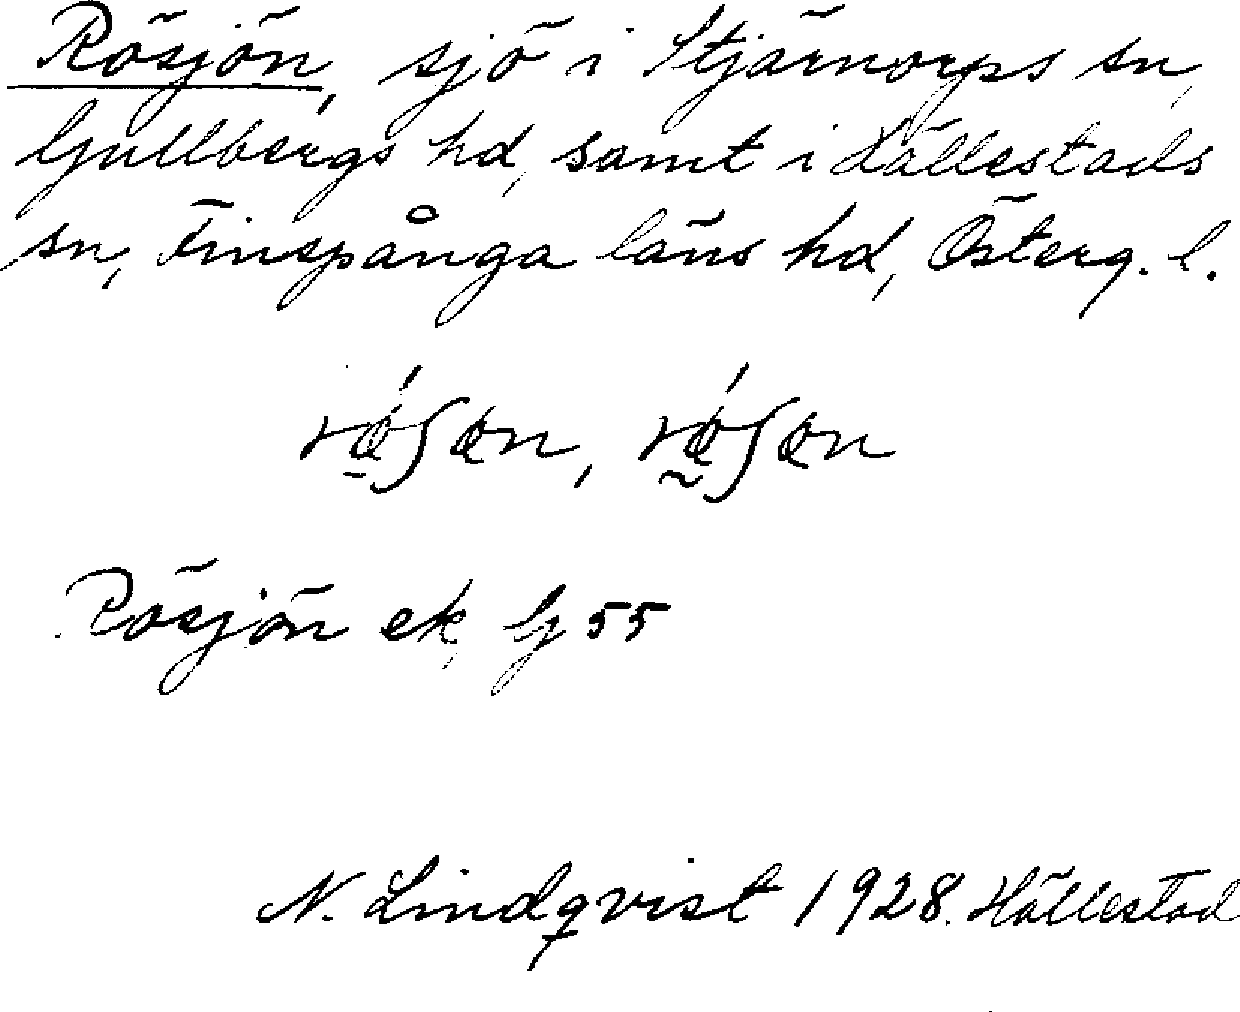 Rösjön, sjö i Stjärnorps sn,
Gullbergs hd, samt i Hällestads
sn, Finspånga läns hd, Österg. l.
Rösjön ek, G 55
N. Lindqvist 1928. Hällestad